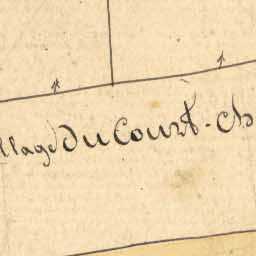 llage Du Court-Ch